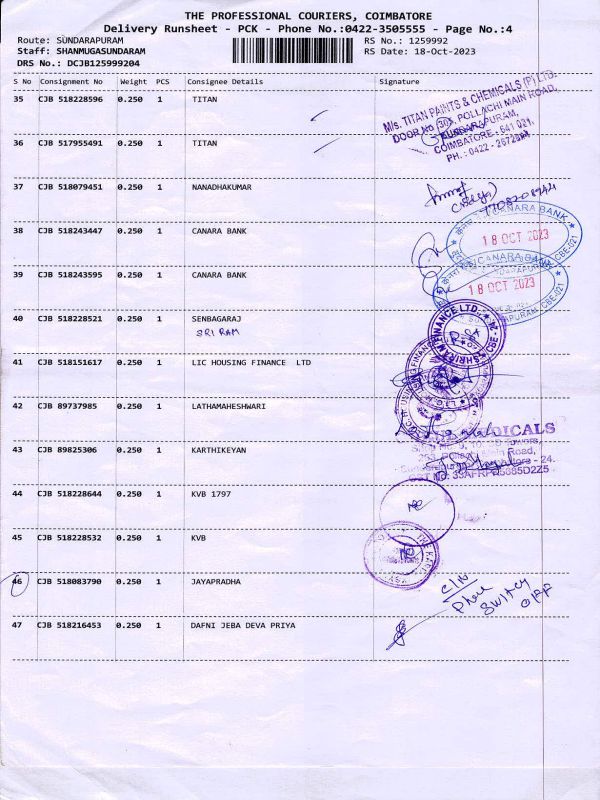 THE PROFESSIONAL COURIERS, COIMBATORE
Delivery Runsheet - PCK - Phone No.:0422-3505555 - Page No.:4
Route: SUNDARAPURAM RS No.: 1259992
Staff: SHANMUGASUNDARAM RS Date: 18-Oct-2023
DRS No.: DCJB125999204
S No Consignment No Weight PCS Consignee Details Signature
35 CJB 518228596 0.250 1 TITAN
M/s. TITAN PAINTS & CHEMICALS (P) LTD.
DOOR No 303, POLLACHI MAIN ROAD,
SUNDARAPURAM,
COIMBATORE - 641 021.
PH.: 0422 - 2672
36 CJB 517955491 0.250 1 TITAN
37 CJB 518079451 0.250 1 NANADHAKUMAR
38 CJB 518243447 0.250 1 CANARA BANK
CANARA BANK
18 OCT 2023
39 CJB 518243595 0.250 1 CANARA BANK
CANARA BANK
18 OCT 2023
40 CJB 518228521 0.250 1 SENBAGARAJ
SRI RAM
SHRIRAM FINANCE LTD.
41 CJB 518151617 0.250 1 LIC HOUSING FINANCE LTD
42 CJB 89737985 0.250 1 LATHAMAHESHWARI
43 CJB 89825306 0.250 1 KARTHIKEYAN
MEDICALS
44 CJB 518228644 0.250 1 KVB 1797
45 CJB 518228532 0.250 1 KVB
46 CJB 518083790 0.250 1 JAYAPRADHA
C/N
Phone
Switch
OFF
47 CJB 518216453 0.250 1 DAFNI JEBA DEVA PRIYA